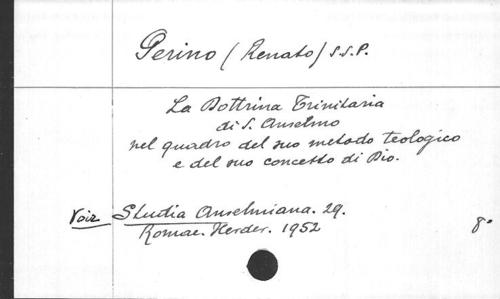 Perino (Renato) S.S.P.
La Dottrina Trinitaria
di S. Anselmo
nel quadro del suo metodo teologico
e del suo concetto di Dio.
Voir Studia Anselmiana. 29.
Romae. Herder. 1952 8°